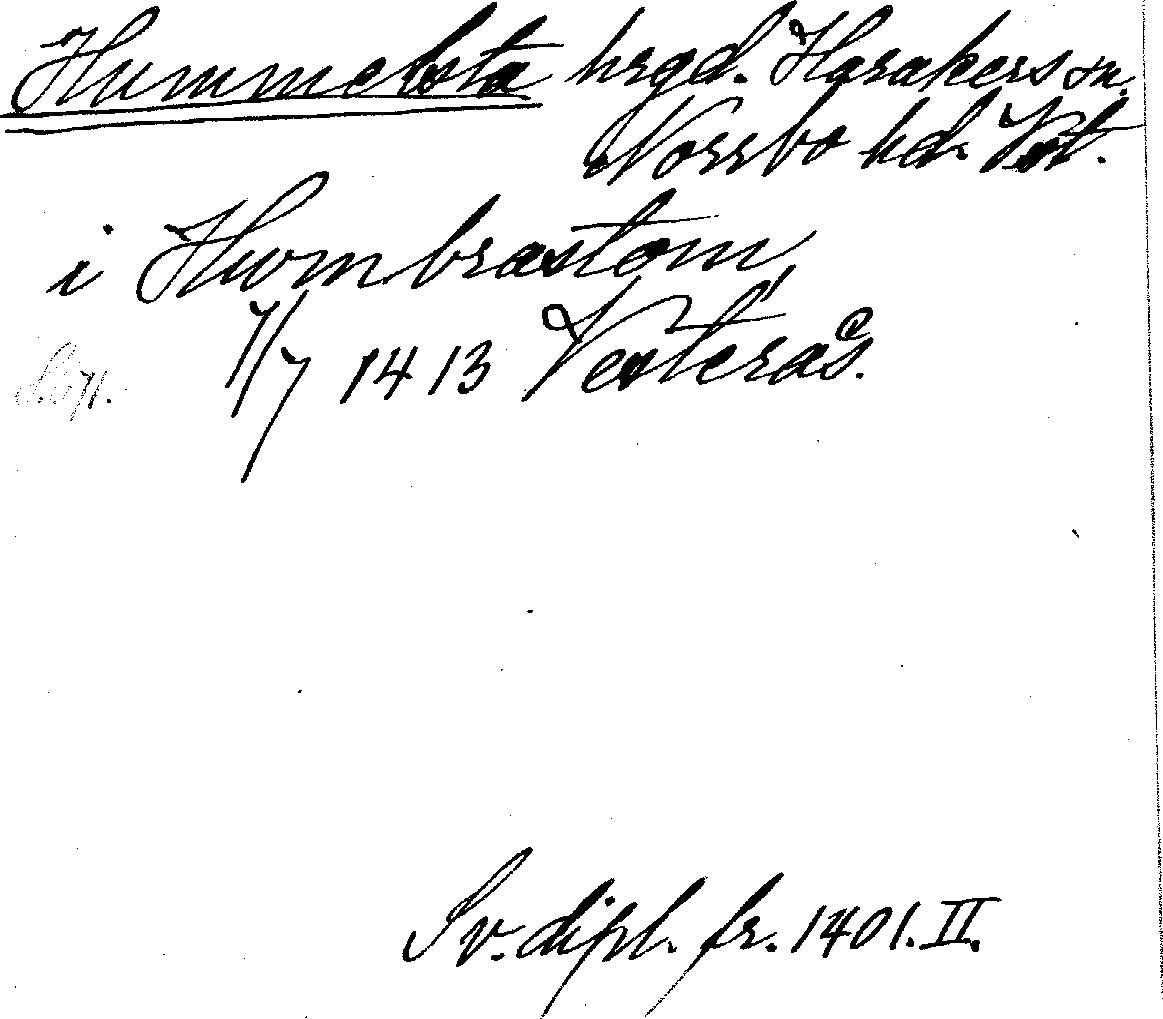 Hummelsta hrgd. Harakers sn.
Norrbo hd. Vstl.
i Humbrastom,
7/7 1413 Vesterås.
Sv. dipl. fr. 1401. II.